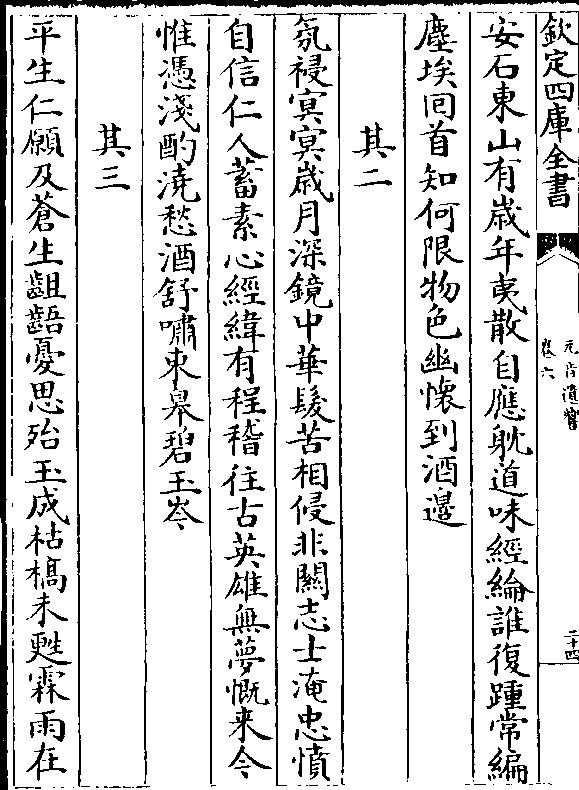 欽定四庫全書
元音遺響
卷六
二十四
安石東山有歲年夷散自應躭道味經綸誰復踵常編
塵埃回首知何限物色幽懷到酒邊
其二
氛祲冥冥歲月深鏡中華髮苦相侵非關志士淹忠憤
自信仁人蓄素心經緯有程稽往古英雄無夢慨来今
惟憑淺酌澆愁酒舒嘯東皋碧玉岑
其三
平生仁願及蒼生齟齬憂思殆玉成枯槁未甦霖雨在